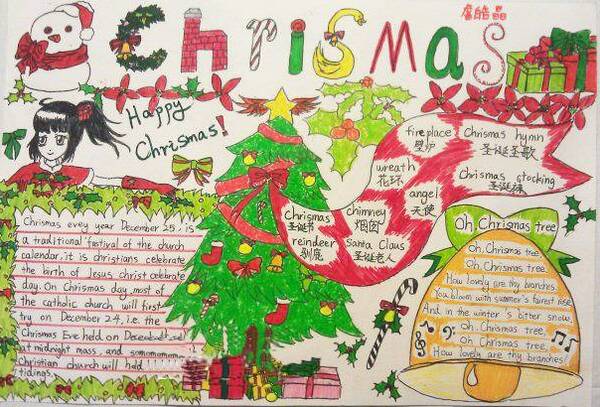 Chrismas
Happy
Chrismas!
fireplace
壁炉
Chrismas hymn
圣诞圣歌
wreath
花环
angel
天使
Chrismas stocking
圣诞袜
Chrismas
圣诞书
chimney
烟囱
reindeer
驯鹿
Santa Claus
圣诞老人
Chrismas evey year December 25. is
a traditional fastival of the church
calendar, it is christians celebrate
the birth of Jesus christ celebrate
day. On Chrismas day, most of
the catholic church will first
try on December 24, i.e. the
Chrismas Eve held on
at midnight mass, and
Christian church will hold
tidings.
Oh, Chrismas tree
Oh, Chrismas tree,
Oh, Chrismas tree,
How lovely are thy branches.
You bloom with summer's fairest rise
And in the winter's bitter snow,
Oh, Chrismas tree,
Oh, Chrismas tree,
How lovely are thy branches!